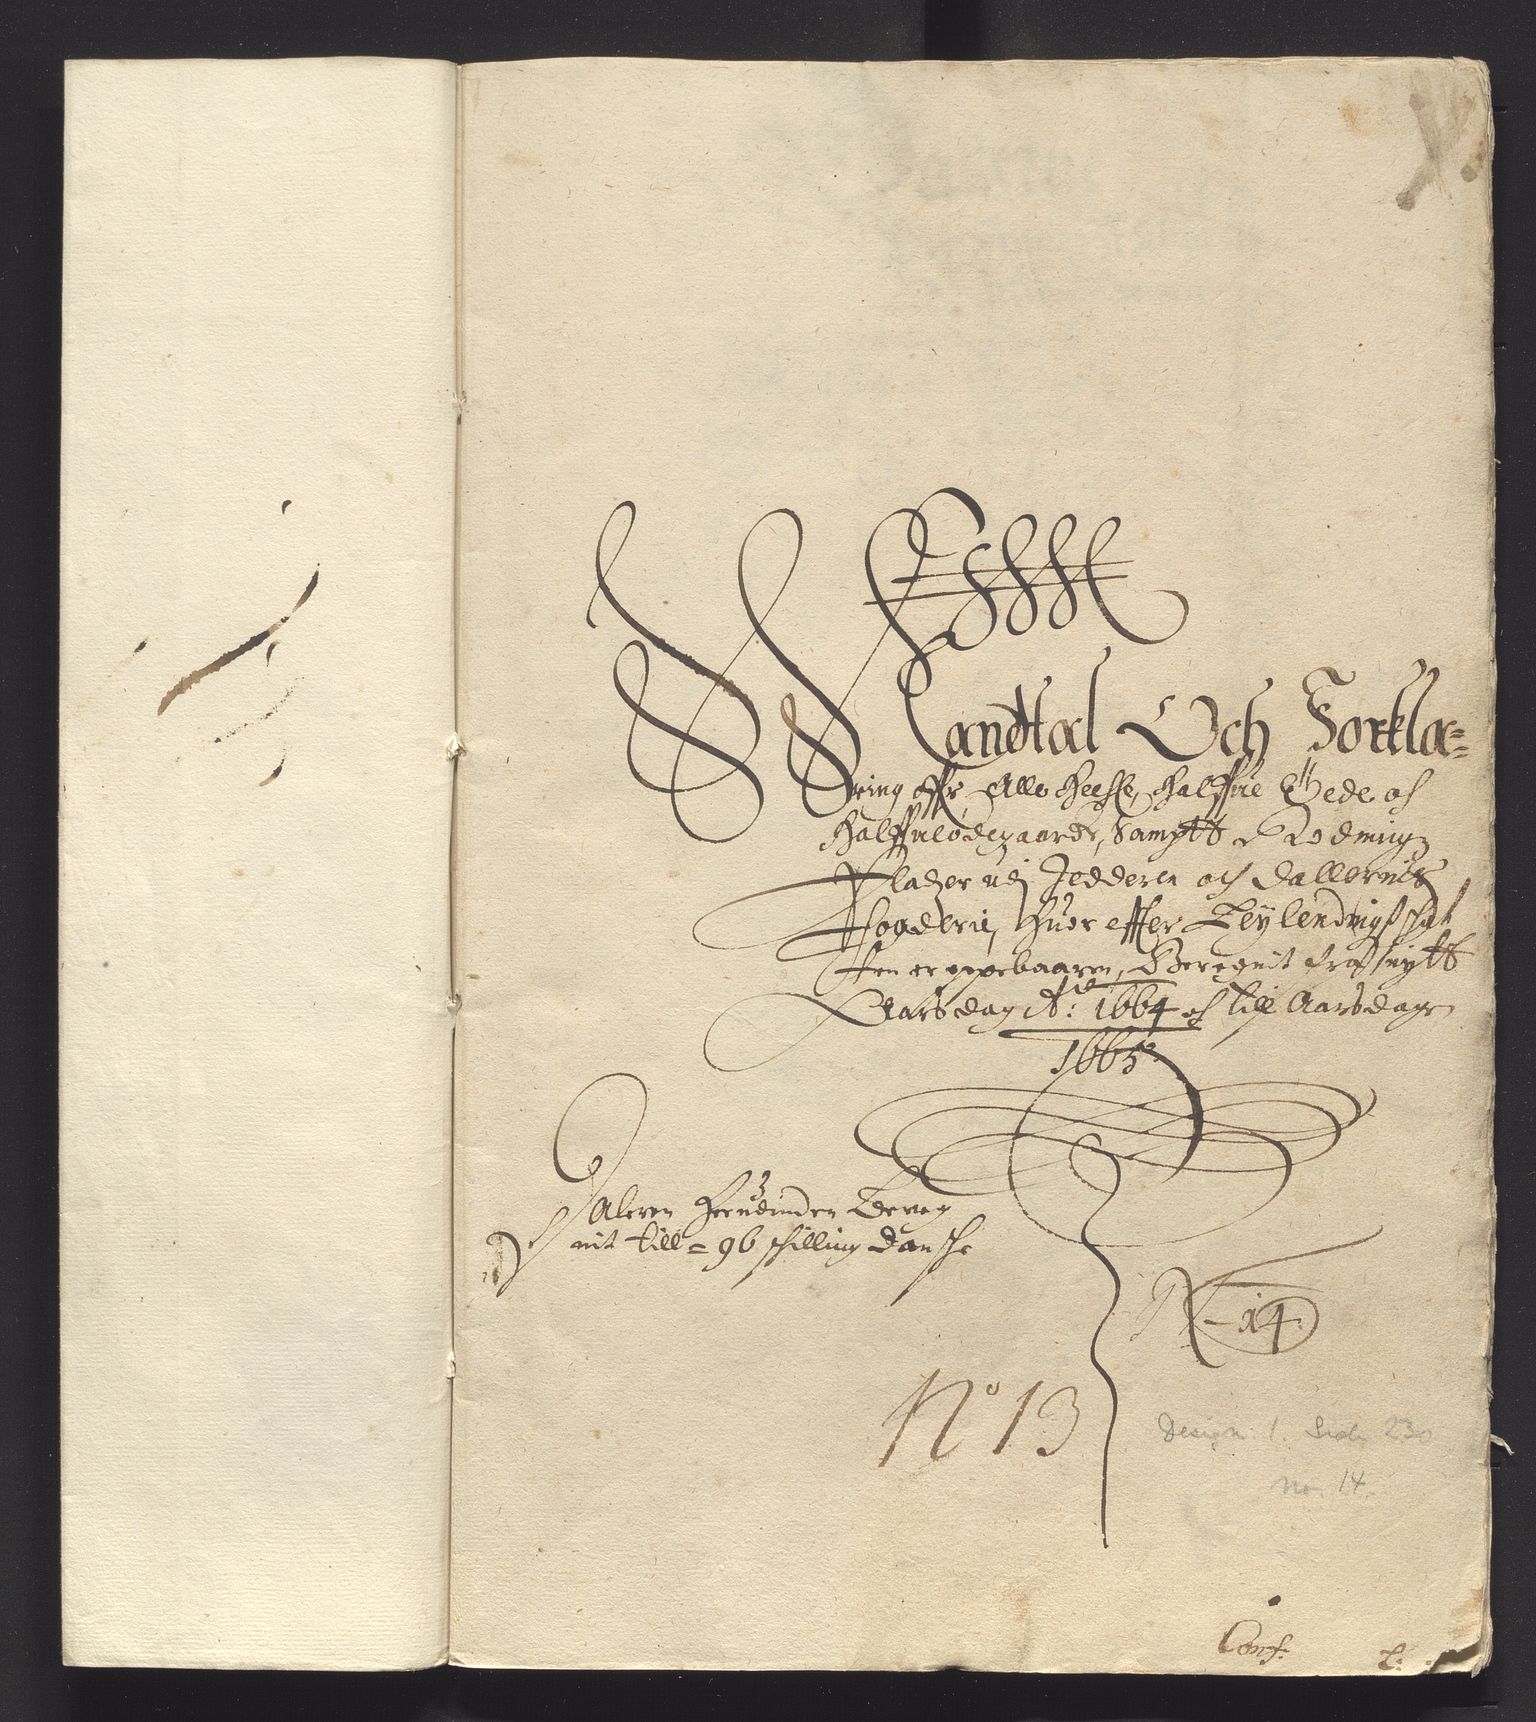 Mandtal Och Forkla=
ring offr Alle heele, halffue Øede och
halffueødegaarde, Sampt Rødnings
Pladzer udj Jedderen och Dallernis
Fogderie, Huor effter Leylendingsschat
ten er oppebaaren, Beregnit fra Nytt
Aarsdag Ao: 1664 och till Aarsdagen
1665
Daleren herudinden Bereg
nit till = 96 schilling dansche
N - 14
No 13
Design: 1. Side 230
No. 14.
Conf: